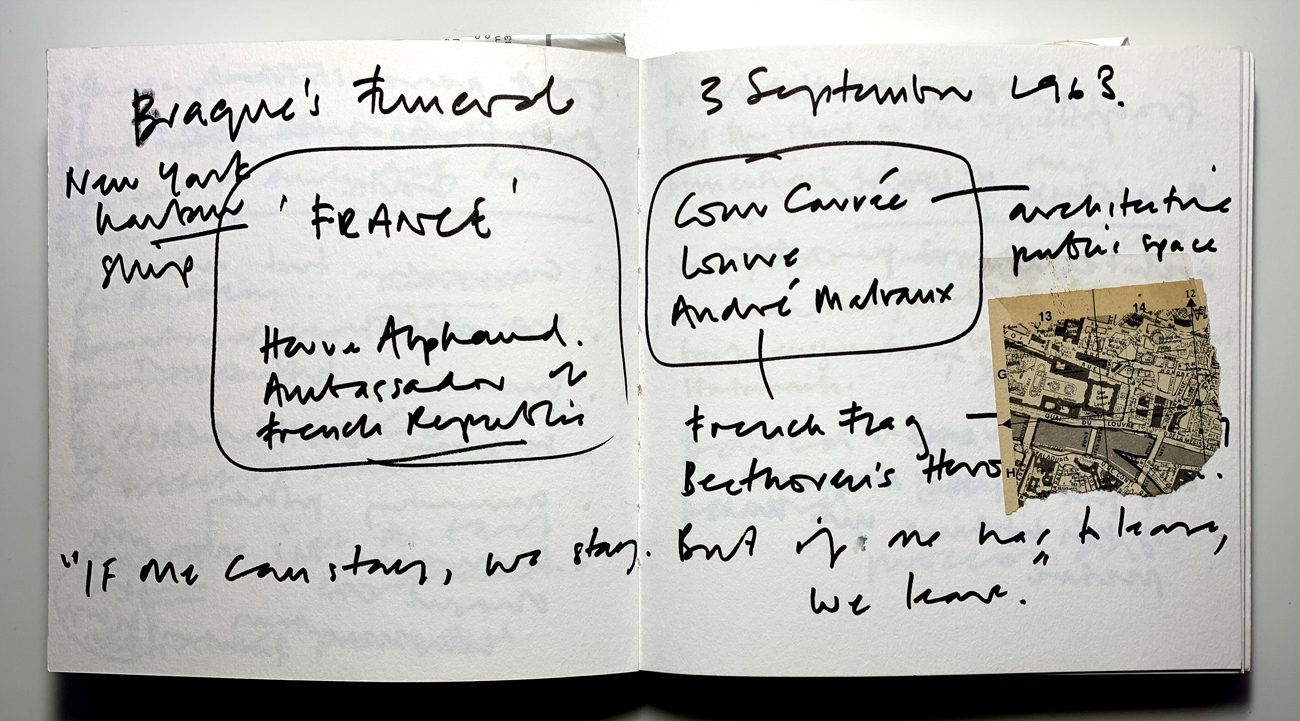 Braque's Funeral
New York
harbour
ship
'FRANCE'
Herve Alphand.
Ambassador of
French Republic
"If one can stay, we stay.
3 September 1963.
Cour Carrée
Louvre
André Malraux
architecture
public space
French Flag
Beethoven's
But if one has to leave,
we leave."
13
14
12
G
H
QUAI DU LOUVRE
MALAQUAIS